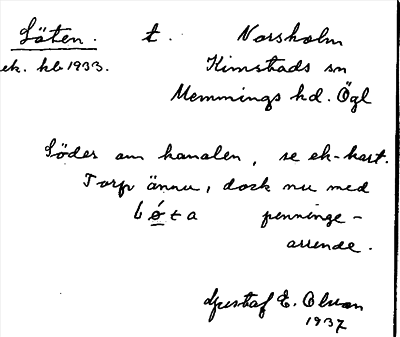 Löten. t. Norsholm
ek. kb 1933. Kimstads sn
Memmings hd. Ögl
Söder om kanalen, se ek-kart.
Torp ännu, dock nu med
bota penninge-
arrende.
Gustaf E. Olson
1937